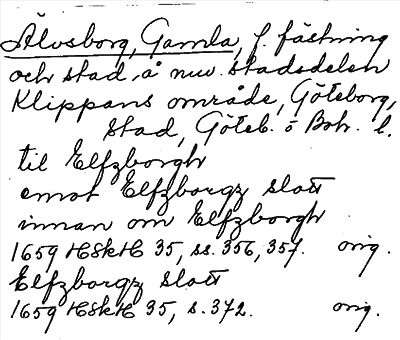 Älvsborg, Gamla, f. fästning
och stad, å nuv. stadsdelen
Klippans område, Göteborg,
stad, Göteb. o Boh. l.
til Elfzborgh
emot Elfzborgz slott
innan om Elfzborgh
1659 HSkH 35, ss. 356, 357. orig.
Elfzborgz slott
1659 HSkH 35, s. 372. orig.